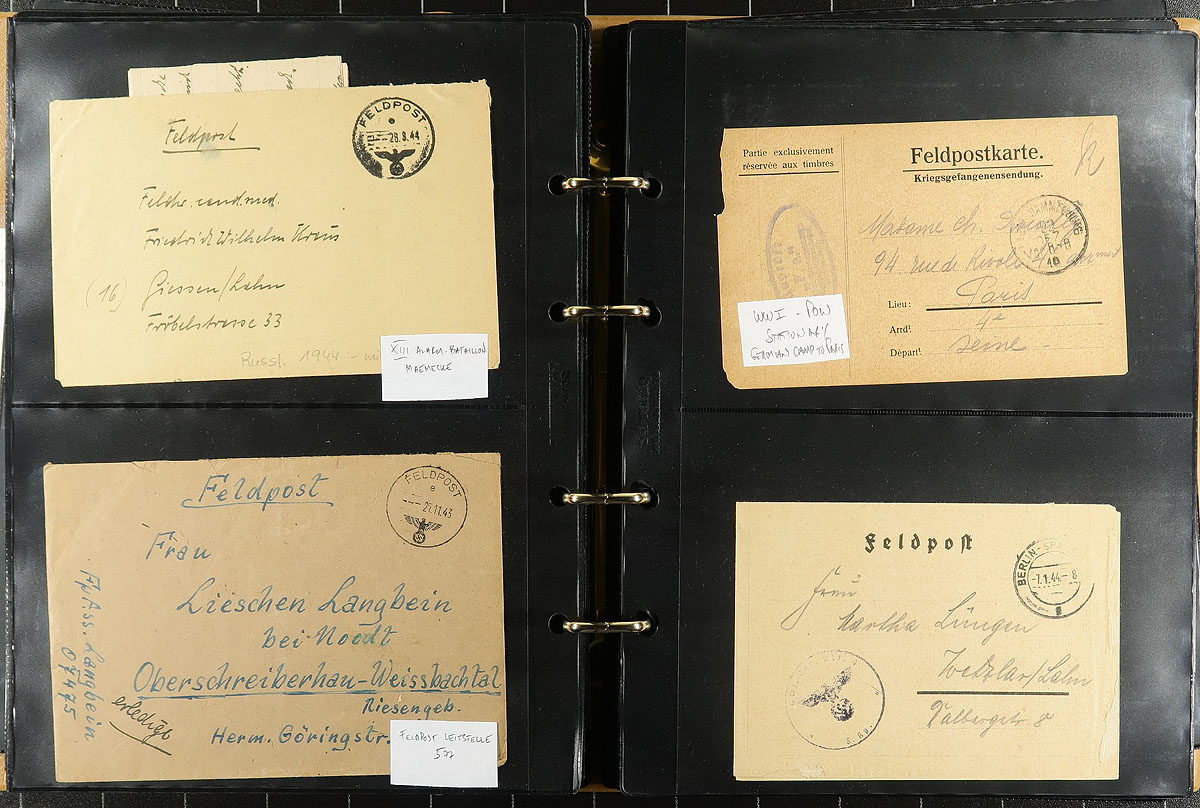 Feldpost
FELDPOST
28.8.44
Feldhr. cand. med.
Friedrich Wilhelm
(16) Giessen/Lahn
Fröbelstrasse 33
Russl. 1944 -
XIII ALARM-BATAILLON
MAEMECKE
Feldpost
FELDPOST
e
21.11.43
Frau
Lieschen Langbein
bei Noodt
Oberschreiberhau-Weissbachtal
Riesengeb.
Herm. Göringstr.
Fp. Ass. Langbein
07475
erledigt
FELDPOST LEITSTELLE
577
Partie exclusivement
réservée aux timbres
Feldpostkarte.
Kriegsgefangenensendung.
R
Madame Ch.
94 rue de Rivoli
Lieu: Paris
Arrdt. 4e
Départt. Seine
WWI - POW
STATIONARY
GERMAN CAMP TO PARIS
Feldpost
BERLIN-SP
-7.1.44-8
Frau
Martha Lüngen
Wetzlar/Lahn
Kalbergstr 8